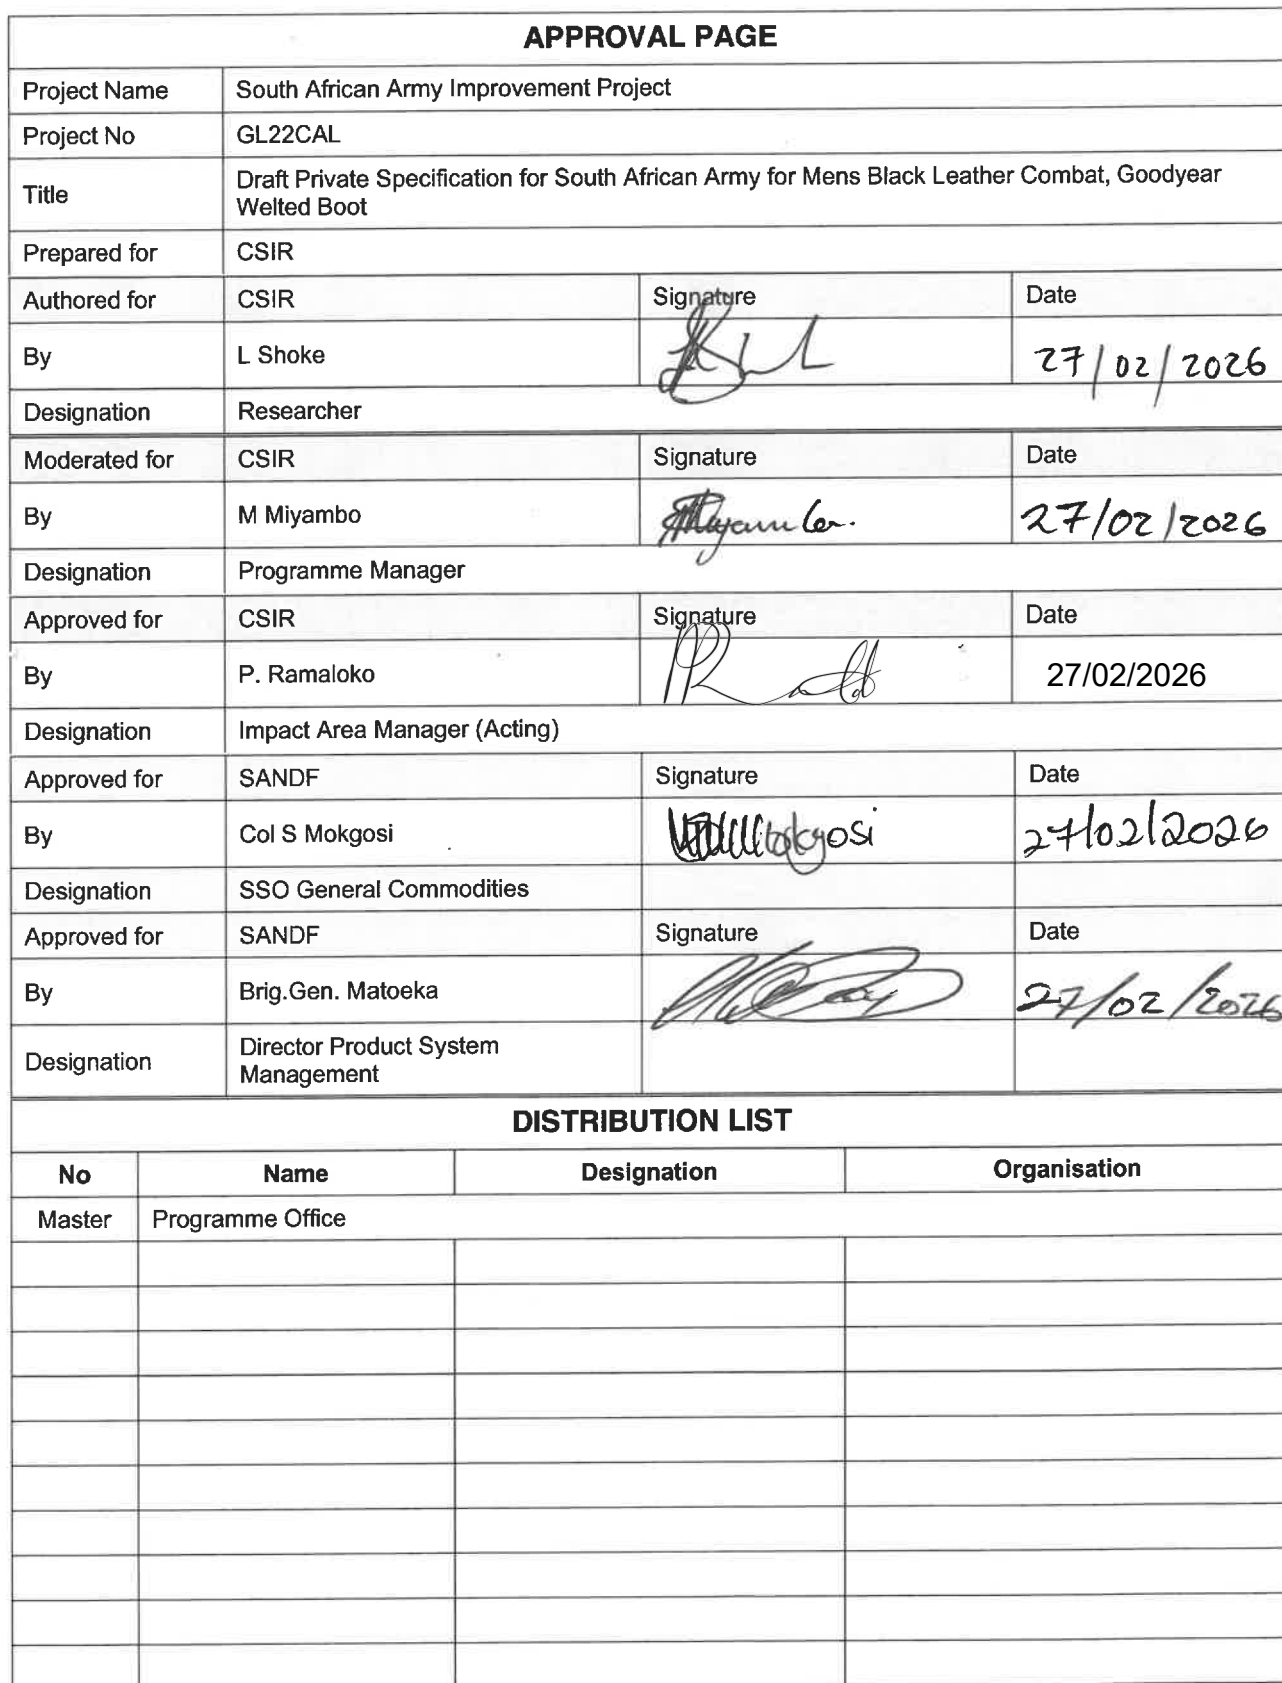 APPROVAL PAGE
Project Name South African Army Improvement Project
Project No GL22CAL
Title Draft Private Specification for South African Army for Mens Black Leather Combat, Goodyear
Welted Boot
Prepared for CSIR
Authored for CSIR Signature Date
By L Shoke 27/02/2026
Designation Researcher
Moderated for CSIR Signature Date
By M Miyambo 27/02/2026
Designation Programme Manager
Approved for CSIR Signature Date
By P. Ramaloko 27/02/2026
Designation Impact Area Manager (Acting)
Approved for SANDF Signature Date
By Col S Mokgosi 27/02/2026
Designation SSO General Commodities
Approved for SANDF Signature Date
By Brig.Gen. Matoeka 27/02/2026
Designation Director Product System
Management
DISTRIBUTION LIST
No Name Designation Organisation
Master Programme Office